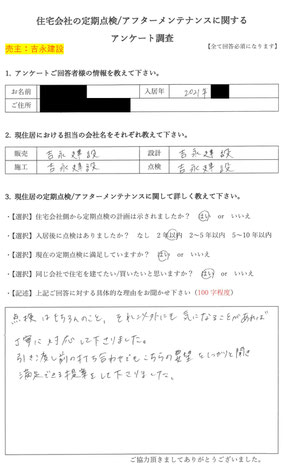 住宅会社の定期点検/アフターメンテナンスに関する
アンケート調査
売主：吉永建設
【全て回答必須になります】
1. アンケートご回答者様の情報を教えて下さい。
お名前 入居年 2021年
ご住所
2. 現住居における担当の会社名をそれぞれ教えて下さい。
販売 吉永建設 設計 吉永建設
施工 吉永建設 点検 吉永建設
3. 現住居の定期点検/アフターメンテナンスに関して詳しく教えて下さい。
・【選択】住宅会社側から定期点検の計画は示されましたか？ はい or いいえ
・【選択】入居後に点検はありましたか？ なし 2年以内 2～5年以内 5～10年以内
・【選択】現在の定期点検に満足していますか？ はい or いいえ
・【選択】同じ会社で住宅を建てたい/買いたいと思いますか？ はい or いいえ
・【記述】上記ご回答に対する具体的な理由をお聞かせ下さい（100字程度）
点検はもちろんのこと、それ以外にも気になることがあれば
丁寧に対応して下さりました。
引き渡し前の打ち合わせでもこちらの要望をしっかりと聞き
満足できる提案をして下さりました。
ご協力頂きましてありがとうございました。